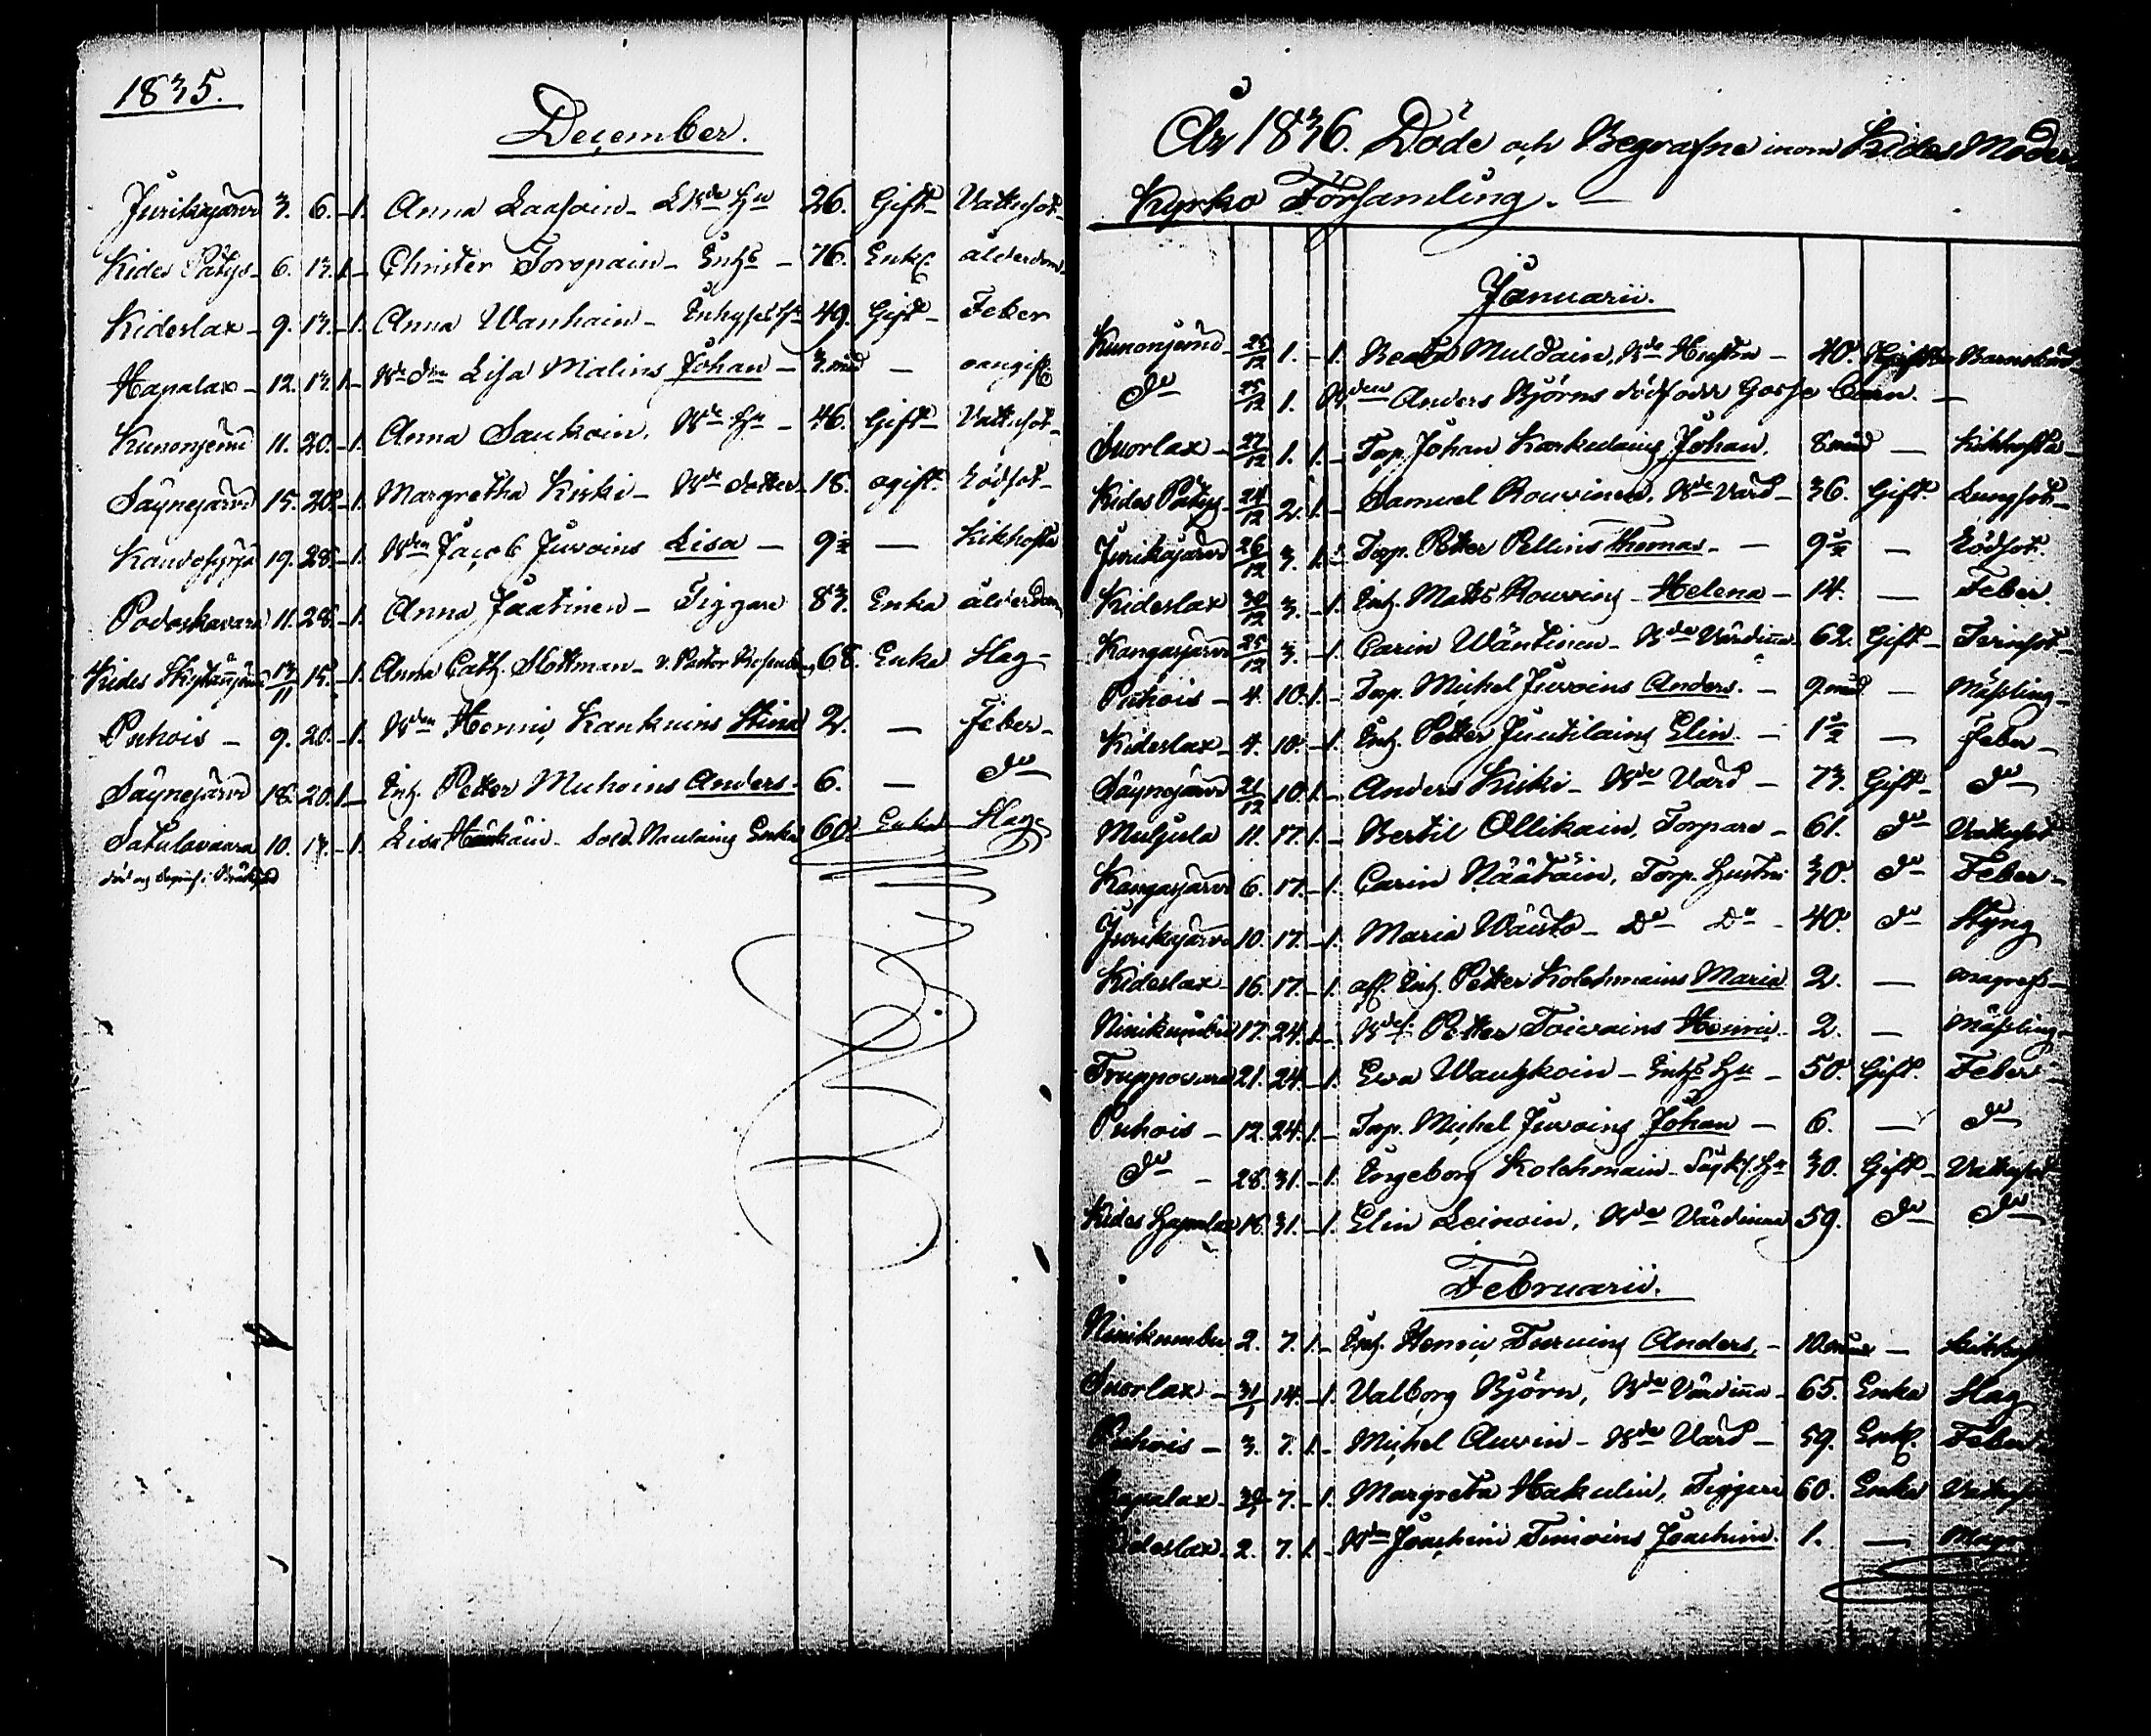 1835.
December.
Jurikajärvi 3. 6. – 1. Anna Laasoin – Hu 26. Gift – Vattusot –
Kides Potys – 6. 13. 1 – Christer Toropain – Enhs – 76. Enkl. ålderdom
Kideslax – 9. 13. – 1. Anna Wanhain – 49. Gift – Feber
Hapalax – 12. 13. 1 – Lisa Malins Johan – 3 mnd – oangifv.
Kunonjemi 11. 20. – 1. Anna Saukoin. Bde Hu – 46. Gift – Vattusot –
Säynejärvi 15. 20. – 1. Margretha Kiski – Bde dotter – 18. ogift. Rödsot –
19. 28. – 1. Bden Jacob Juvoins Lisa — 9 — Kikhosta
Podoskavara 11. 28. – 1. Anna Jaatinen – Tiggare 83. Enka ålderdom
Kides 13/11 15. – 1. Anna Cath. Slottman – v. Pastor 68. Enka Slag –
Puhois – 9. 20. – 1. Bden Henric Kankuins Stina 2. — Feber –
Säynejärvi 18. 20. 1 – Enh. Petter Muhoins Anders. 6. — Do
Satulavaara 10. 13. – 1. Lisa – Sold. Enka 60. Enka Slag –
År 1836. Döde och Begrafne inom Kides Moder
Kyrko Församling. –
Januarii.
Kunonjemi 25/12 1. – 1. Beata Muldain, Bde Hustru – 40. Barnsbörd
Do 25/12 1. Bden Anders Björns dödfödde Gosse barn. –
Suorlax – 27/12 1. 1. – Torp. Johan Karkulains Johan. 8 mnd — Kikhosta –
Kides Potys 24/12 2. 1 – Samuel Rouvinen, Bde Värd – 36. Gift. Lungsot –
Jurikajärvi 26/12 3. 1. – Torp. Petter Pellins Thomas. – 9 – Rödsot.
Kideslax 30/12 3. – 1. Enh. Matts Rouvins – Helena – 14. — Feber.
Kangasjärvi 25/12 3. – 1. Carin Wäntinen – Bde Värdinna – 62. Gift –
Puhois – 4. 10. 1 – Torp. Michel Juvoins Anders. – 9 mnd – Mässling –
Kideslax – 4. 10. – 1. Enh. Petter Juutilains Elin. – 1 — Feber –
Säynejärvi 21/12 10. 1. – Anders Kiski – Bde Värd – 73. Gift – Do
Muljula 11. 17. 1. – Bertil Ollikain, Torpare – 61. Do Vattusot
Kangasjärvi 6. 17. – 1. Carin Näätäin, Torp. Hustru 30. Do Feber –
Jurikajärvi 10. 17. – 1. Maria Wäistö – Do Do – 40. Do Styng
Kideslax – 16. 17. – 1. afl. Enh. Petter Kolehmains Maria 2. —
Niinikumbu 17. 24. 1. – Petter Toivains Henric. 2. – Mässling –
Truppovara 21. 24. – 1. Ewa Wauhkoin – Enhs Hu – 50. Gift. Feber –
Puhois – 12. 24. 1. – Torp. Michel Juvoins Johan — 6. — Do
Do – 28. 31. – 1. Engeborg Kolehmain – Hu 30. Gift – Vattusot
Kides Hapalax 16. 31. – 1. Elin Leinoin, Bde Värdinna 59. Do Do
Februarii.
Niinikumbu 2. 7. 1. – Enh. Henric Anders, – 10 mnd – Kikhos
Suorlax – 31/1 14. – 1. Valborg Björn, Bde Värdinna – 65. Enka Slag
Puhois – 3. 7. 1 – Michel Auvin – Bde Värd – 59. Enkl. Feber
Hapalax – 7. – 1. Margreta Hakulin, Tiggare 60. Enka
Kideslax. 2. 7. 1. – Bden Joachim Joachim. 1. —